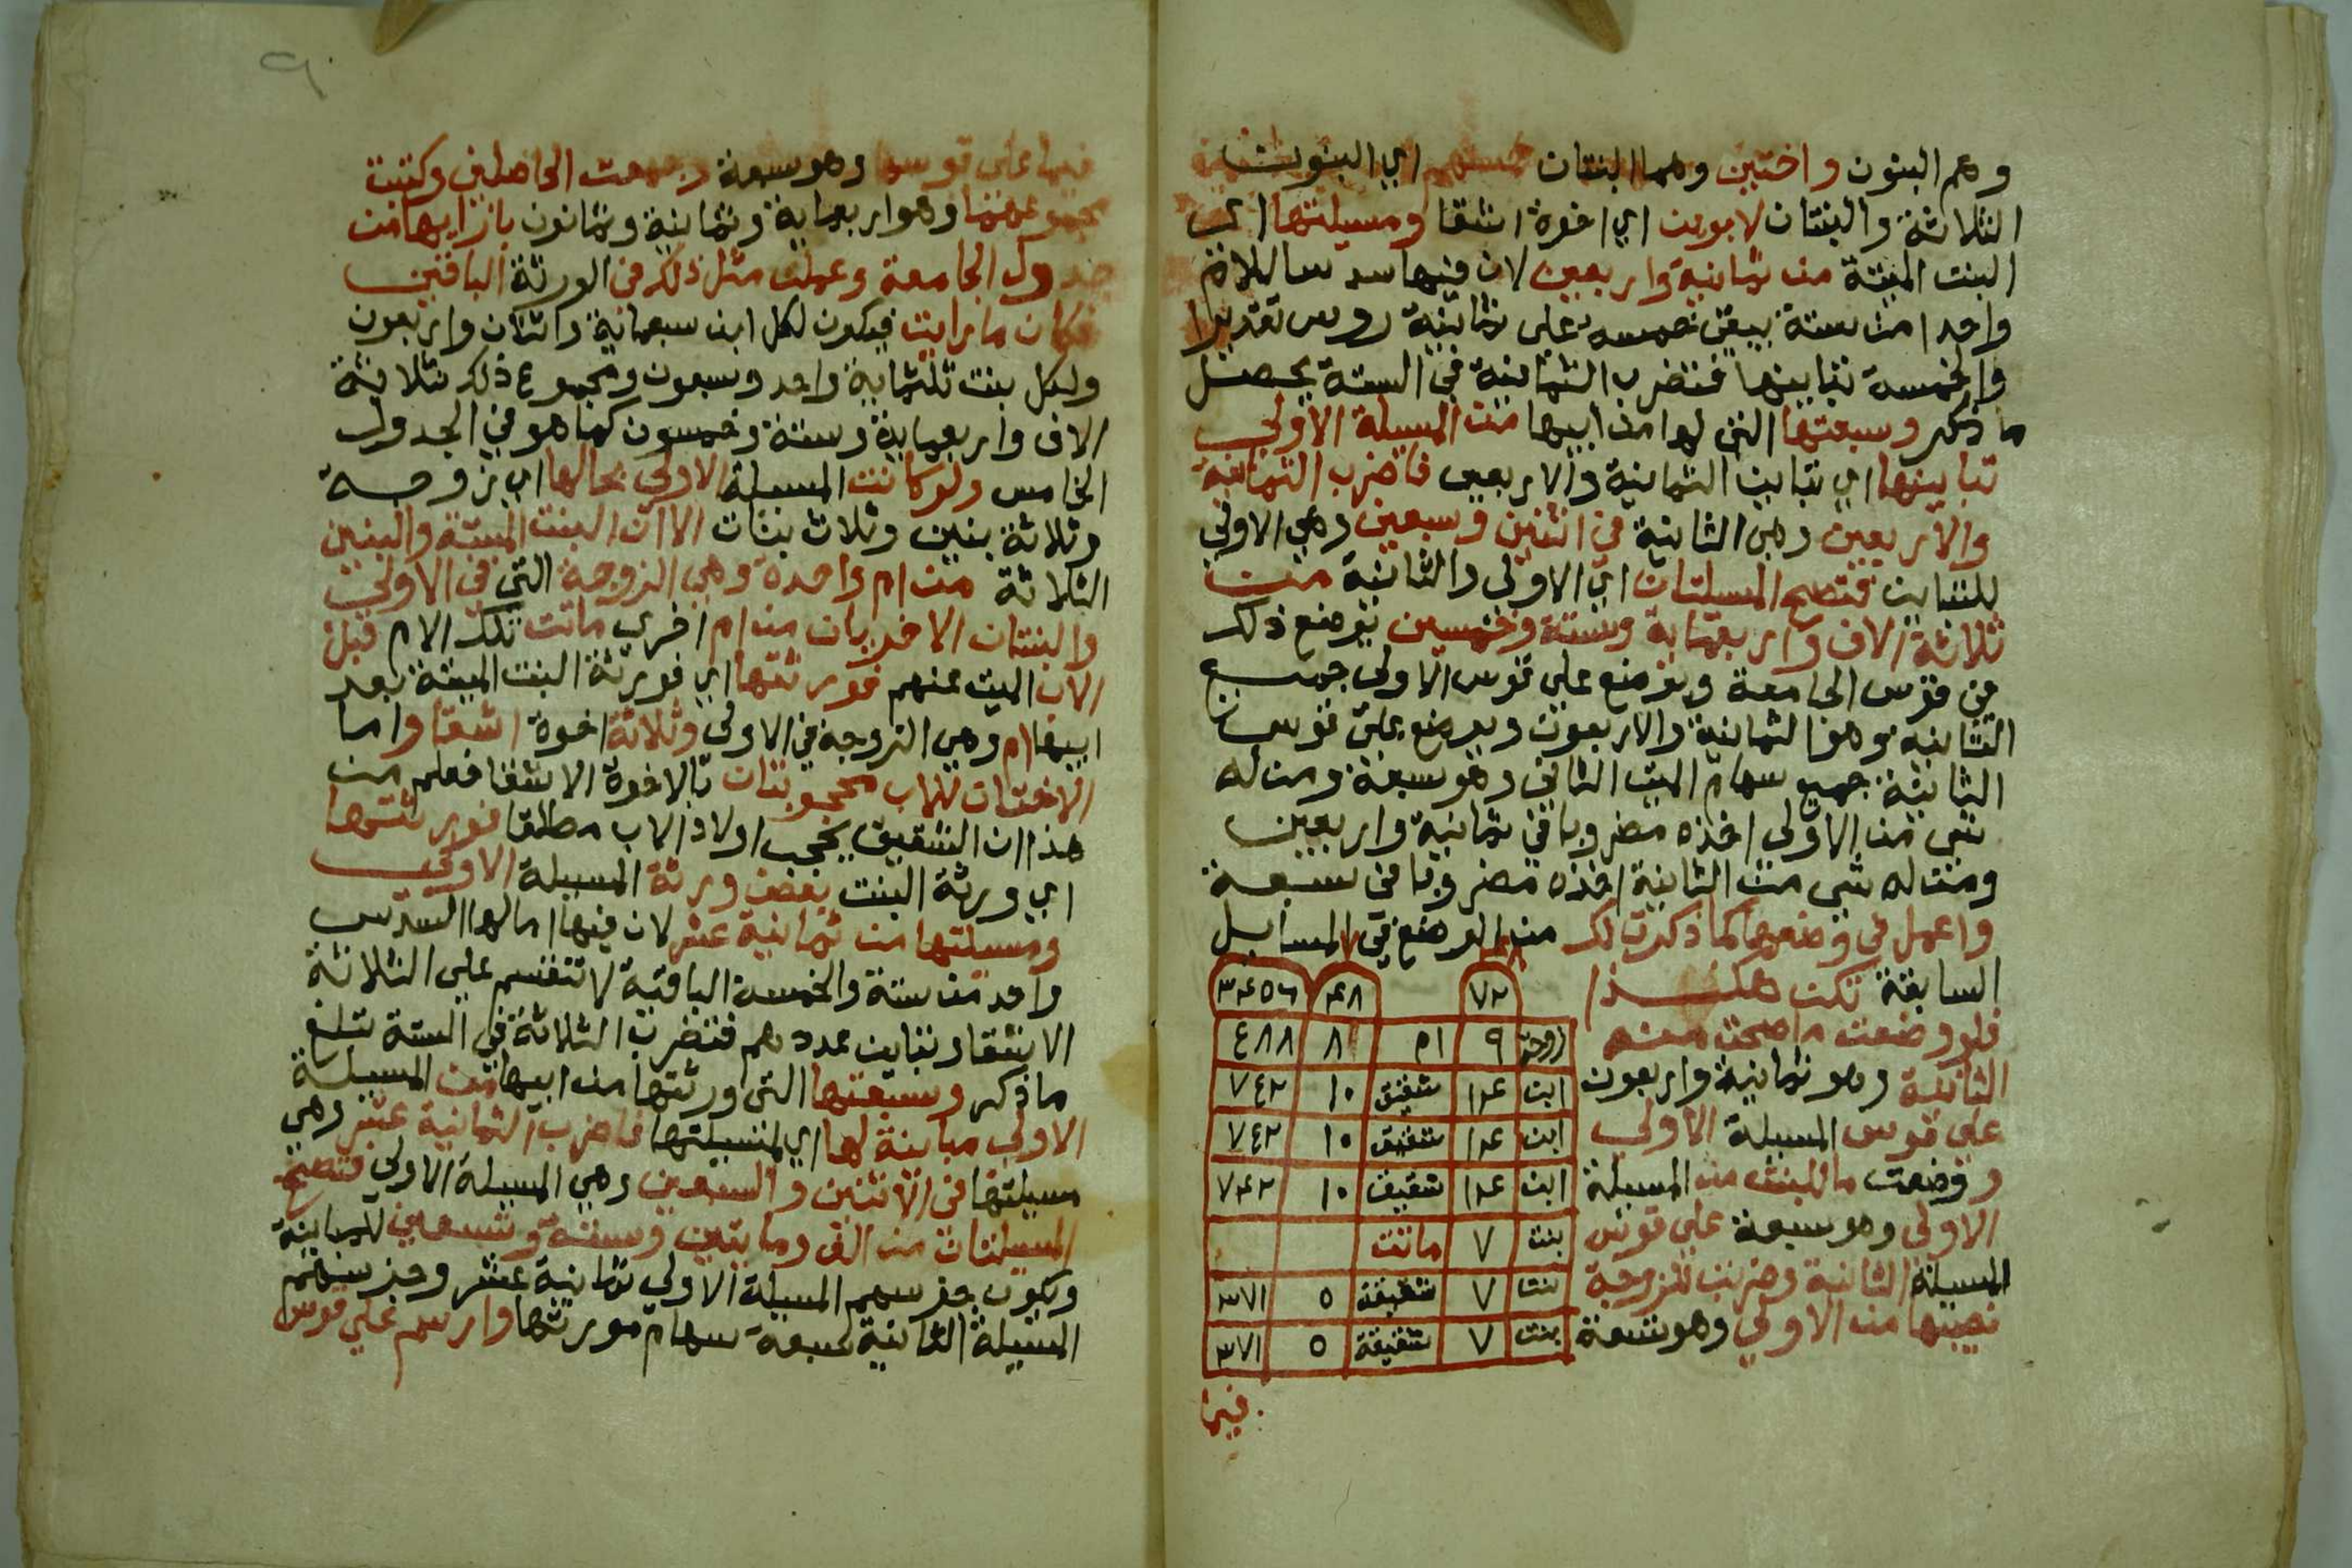 وهم البنون واختين وهما البنتان خمستهم اي البنون
الثلاثة والبنتان لابوين اي اخوة اشقا ومسيلتها اي
البنت الميتة من ثمانية واربعين لان فيها سدسا للام
واحدا من ستة يبقى خمسة على ثمانية روس تقديرا
والخمسة تباينها فتضرب الثمانية في الستة يحصل
ما ذكر وسبعتها التي لها من ابيها من المسيلة الاولى
تباينها اي تباين الثمانية والاربعين فاضرب الثمانية
والاربعين وهي الثانية في اثنين وسبعين وهي الاولى
للتباين فتصح المسيلتان اي الاولى والثانية من
ثلاثة الاف واربعماية وستة وخمسين يوضع ذلك
في قوس الجامعة ويوضع على قوس الاولى جميع
الثانية وهو الثمانية والاربعون ويوضع على قوس
الثانية جميع سهام الميت الثاني وهو سبعة ومن له
شى من الاولى اخذه مضروبا في ثمانية واربعين
ومن له شى من الثانية اخذه مضروبا في سبعة
واعمل في وضعها كما ذكرت لك من الوضع في المسايل
السابقة تكن هكذا
فلو وضعت ما صحت منه
الثانية وهو ثمانية واربعون
على قوس المسيلة الاولى
ووضعت ما للبنت من المسيلة
الاولى وهو سبعة على قوس
المسيلة الثانية وضربت للزوجة
نصيبها من الاولى وهو تسعة
٤٨ ٧
٧٢ ٤٨ ٣٤٥٦
زوجة ٩ ام ٨ ٤٨٨
ابن ١٤ شقيق ١٠ ٧٤٢
ابن ١٤ شقيق ١٠ ٧٤٢
ابن ١٤ شقيق ١٠ ٧٤٢
بنت ٧ ماتت
بنت ٧ شقيقة ٥ ٣٧١
بنت ٧ شقيقة ٥ ٣٧١
فيما
٩
فيما على قوسها وهو سبعة وجمعت الحاصلين وكتبت
مجموعهما وهو اربعماية وثمانية وثمانون بازايها من
جدول الجامعة وعملت مثل ذلك في الورثة الباقين
فكان ما رايت فيكون لكل ابن سبعماية واثنان واربعون
ولكل بنت ثلثماية واحد وسبعون ومجموع ذلك ثلاثة
الاف واربعماية وستة وخمسون كما هو في الجدول
الخامس ولو كانت المسيلة الاولى بحالها اي زوجة
وثلاثة بنين وثلاث بنات الا ان البنت الميتة والبنين
الثلاثة من ام واحدة وهي الزوجة التي في الاولى
والبنتان الاخريان من ام اخرى ماتت تلك الام قبل
الاب الميت عنهم فورثتها اي فورثة البنت الميتة بعد
ابيها ام وهي الزوجة في الاولى وثلاثة اخوة اشقا واما
الاختان للاب محجوبتان بالاخوة الاشقا فعلم من
هذا ان الشقيق يحجب اولاد الاب مطلقا فورثتها
اي ورثة البنت بعض ورثة المسيلة الاولى
ومسيلتها من ثمانية عشر لان فيها امالها السدس
واحد من ستة والخمسة الباقية لا تنقسم على الثلاثة
الاشقا وتباين عددهم فتضرب الثلاثة في الستة تبلغ
ما ذكر وسبعتها التي اورثتها من ابيها من المسيلة
الاولى مباينة لها اي لمسيلتها فاضرب الثمانية عشر وهي
مسيلتها في الاثنين والسبعين وهي المسيلة الاولى فتصح
المسيلتان من الف ومايتين وستة وتسعين للمباينة
ويكون جزسهم المسيلة الاولى ثمانية عشر وجزسهم
المسيلة الثانية سبعة سهام مورثها وارسم على قوس